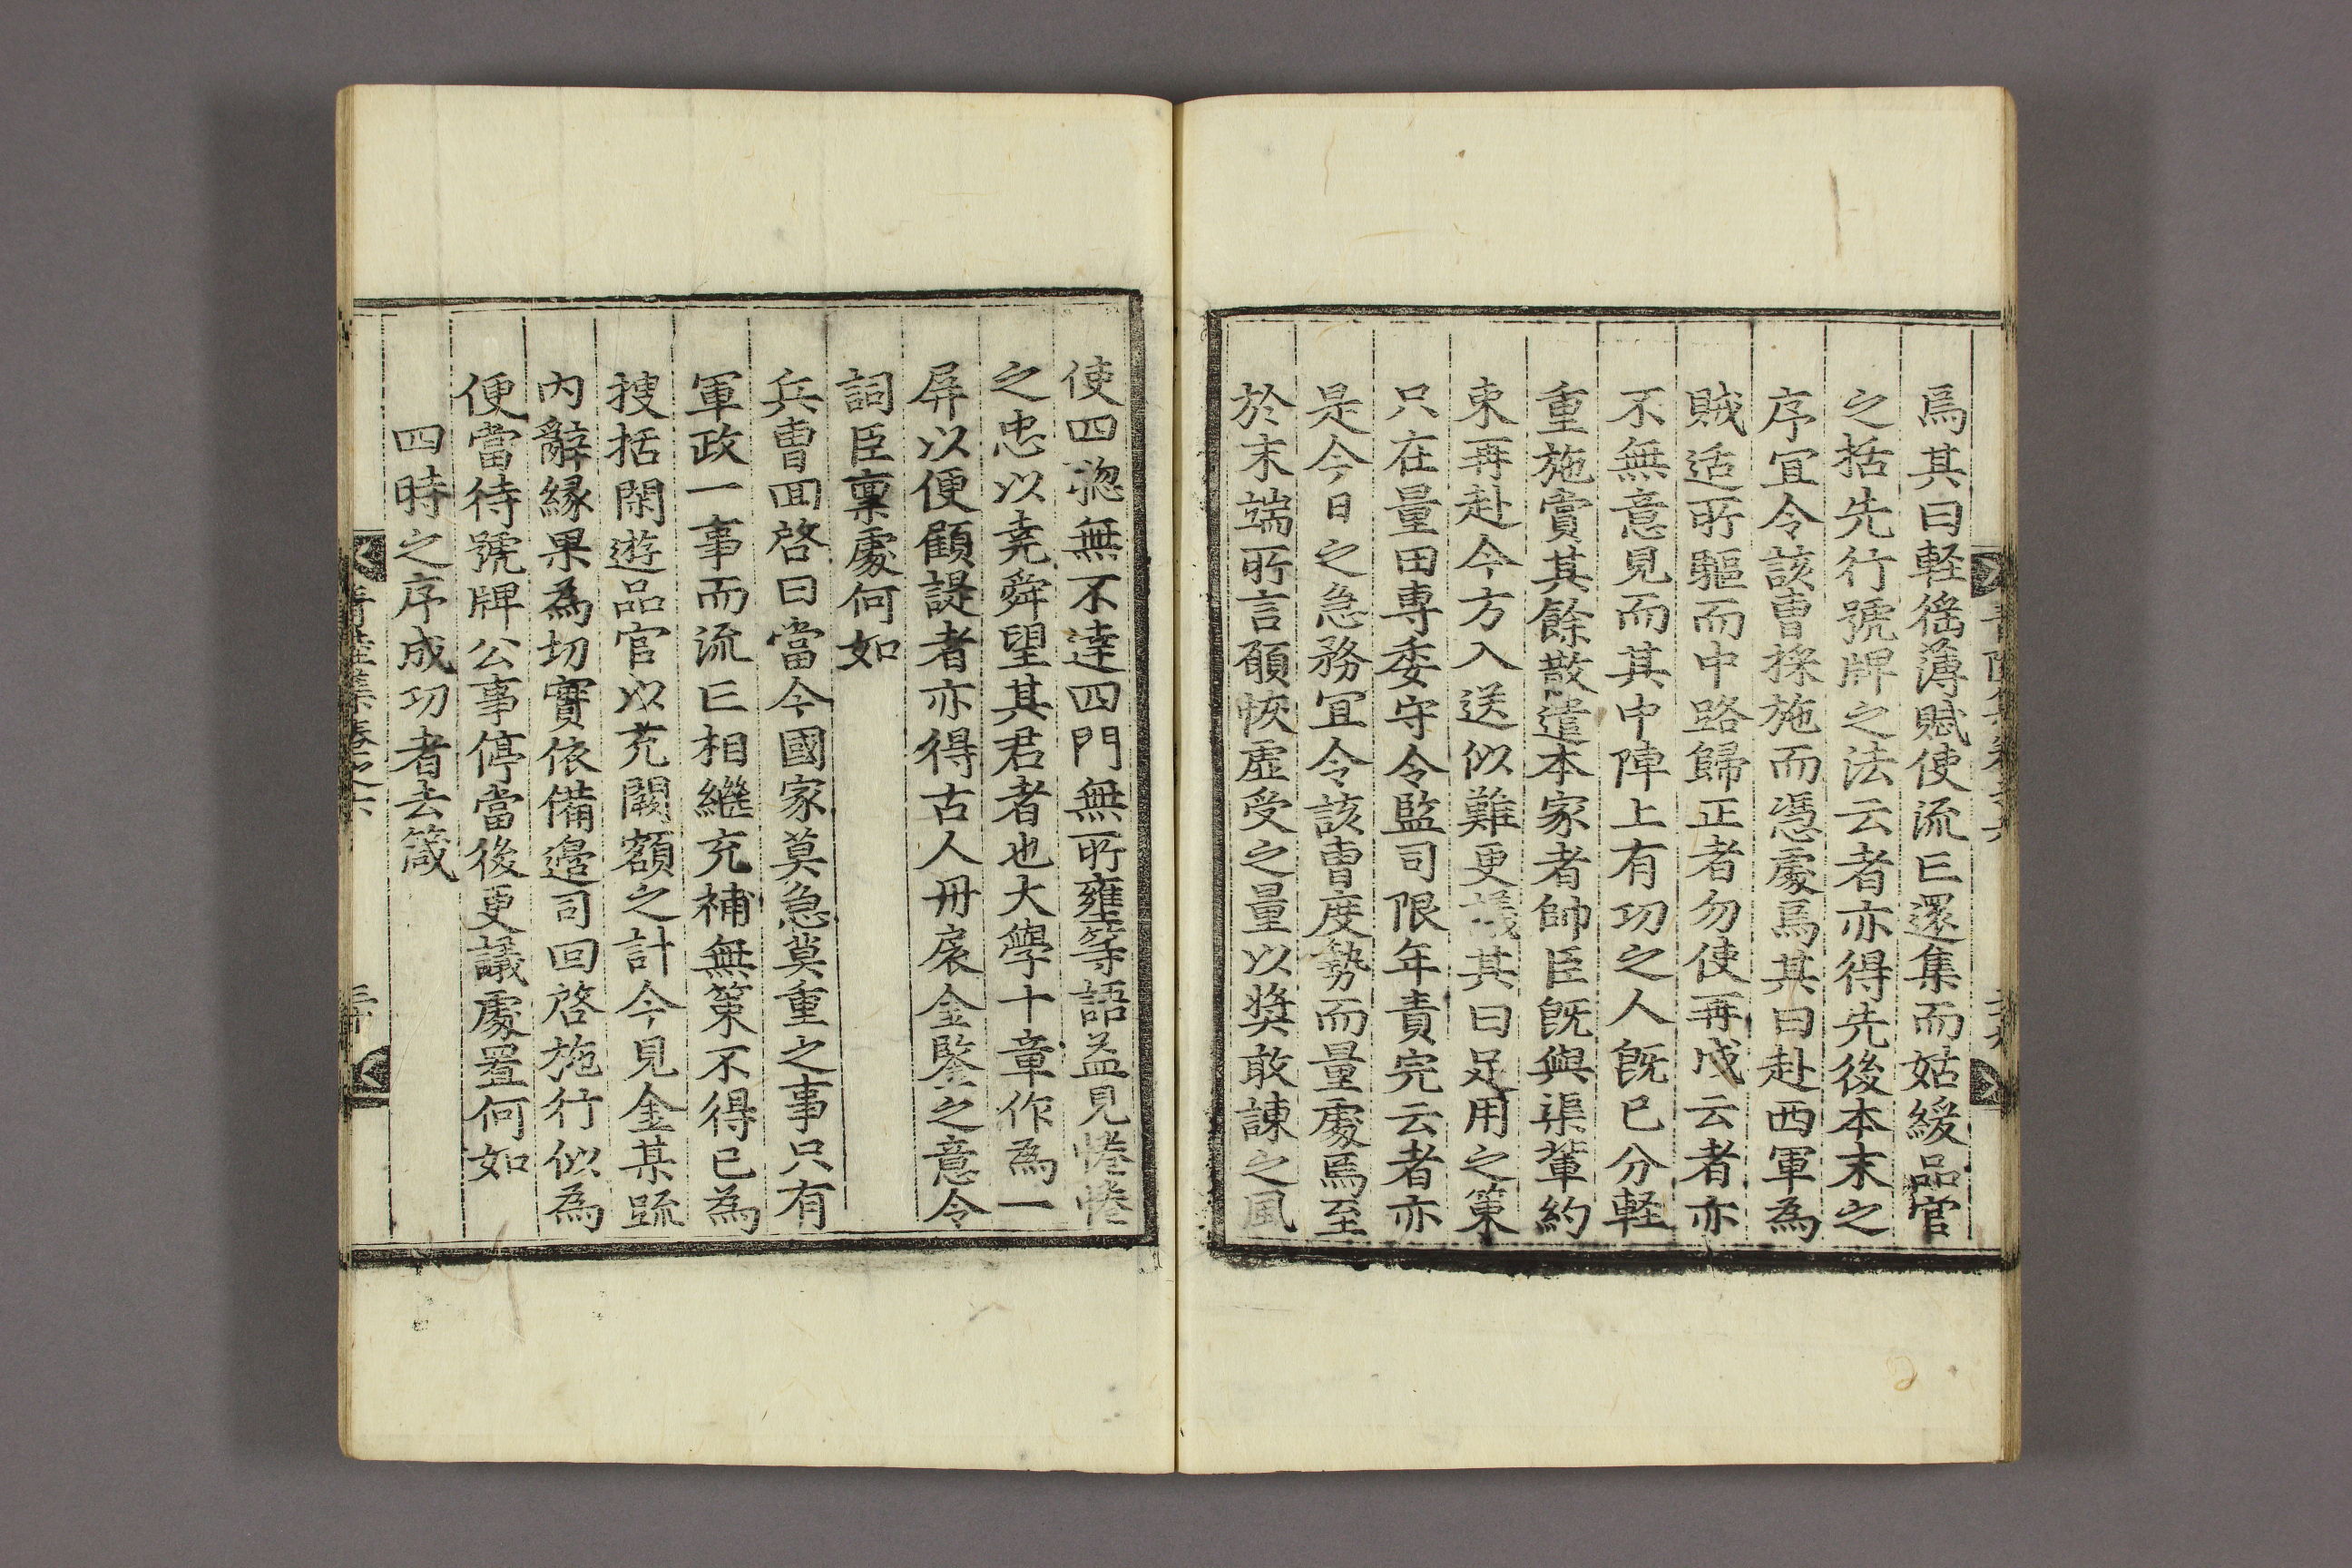 焉其曰輕徭薄賦使流亡還集而姑緩品官
之括先行號牌之法云者亦得先後本末之
序宜令該曺採施而憑處焉其曰赴西軍為
賊适所驅而中路歸正者勿使再戍云者亦
不無意見而其中陣上有功之人旣已分輕
重施賞其餘散遣本家者帥臣旣與渠輩約
束再赴今方入送似難更議其曰足用之策
只在量田專委守令監司限年責完云者亦
是今日之急務宜令該曺度勢而量處焉至
於末端所言願恢虛受之量以奬敢諫之風
使四聦無不達四門無所壅等語益見惓惓
之忠以堯舜望其君者也大學十章作為一
屏以便顧諟者亦得古人冊扆金鑒之意令
詞臣稟處何如
兵曺回啓曰當今國家莫急莫重之事只有
軍政一事而流亡相繼充補無策不得已為
搜括閑遊品官以充闕額之計今見金某䟽
內辭緣果為切實依備邊司回啓施行似為
便當待號牌公事停當後更議處置何如
四時之序成功者去箴